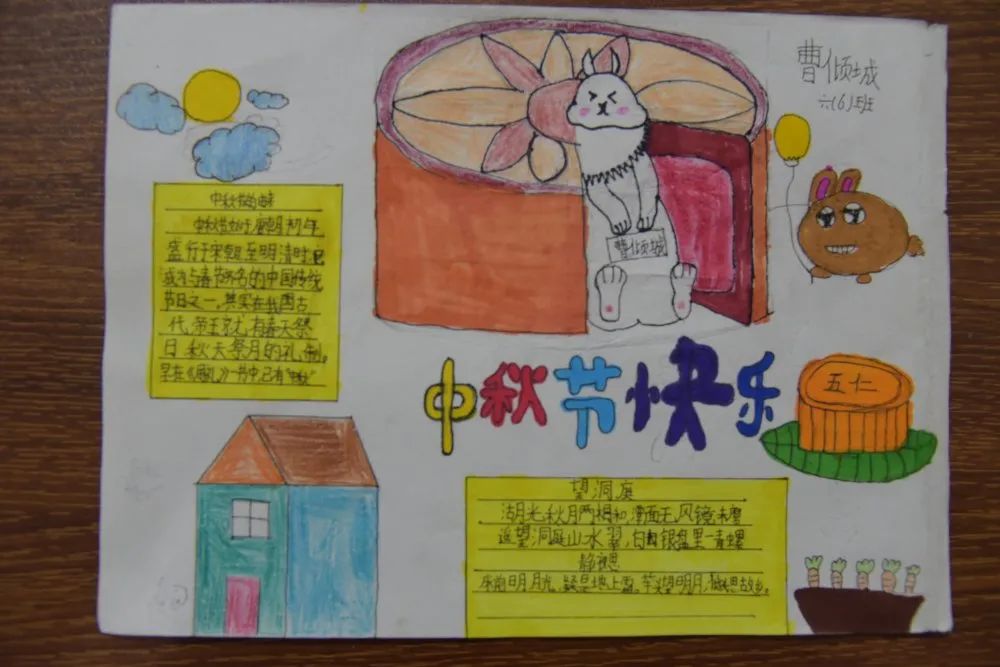 曹倾城
六(6)班
中秋节的由来
中秋节始于唐朝初年
盛行于宋朝至明清时,已
成为与春节齐名的中国传统
节日之一,其实在我国古
代,帝王就有春天祭
日,秋天祭月的礼制。
早在《周礼》一书中已有"中秋"
曹倾城
中秋节快乐
五仁
望洞庭
湖光秋月两相和,潭面无风镜未磨
遥望洞庭山水翠,白银盘里一青螺
静夜思
床前明月光,疑是地上霜,举头望明月,低头思故乡。